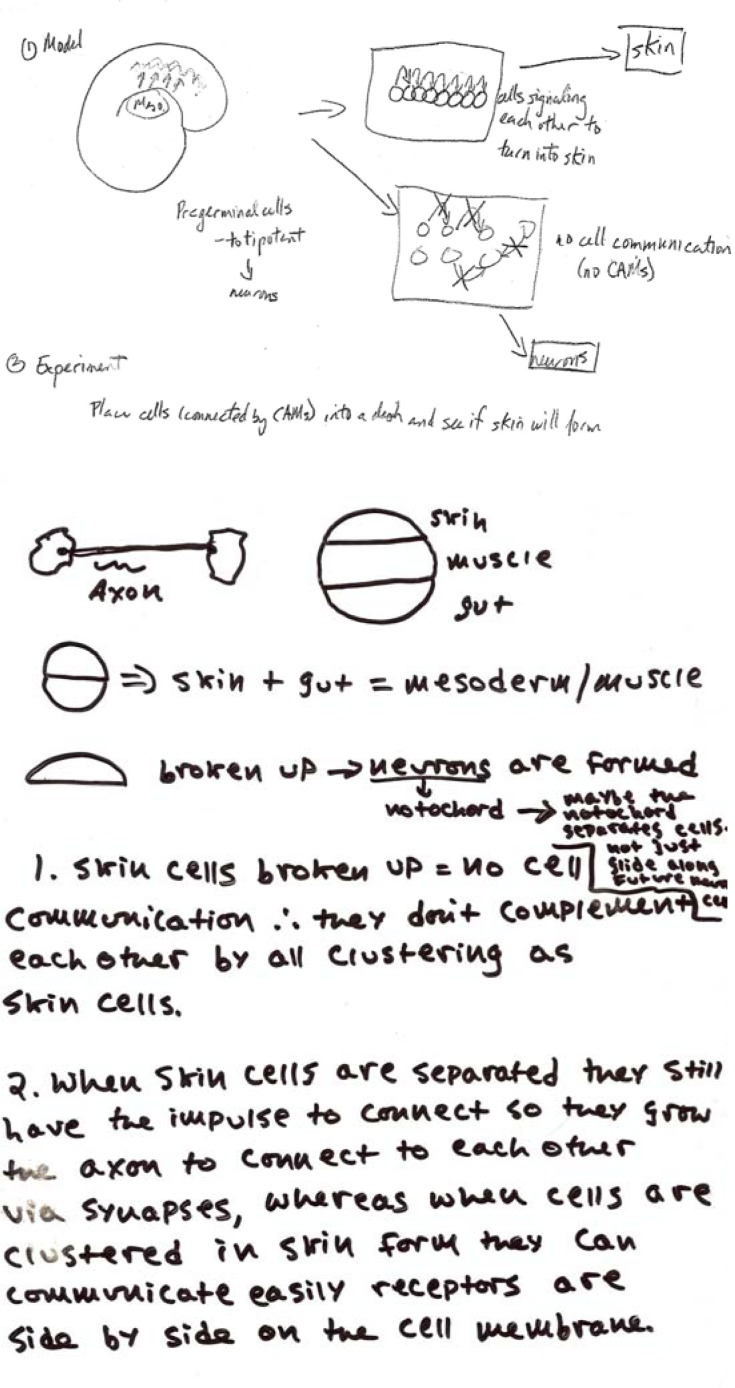 ① Model
Meso
skin
cells signaling
each other to
turn into skin
Pregerminal cells
- totipotent
↓
neurons
no cell communication
(no CAMs)
neurons
② Experiment
Place cells (connected by CAMs) into a dish and see if skin will form
Axon
skin
muscle
gut
⇒ skin + gut = mesoderm/muscle
broken up → neurons are formed
↓
notochord → maybe the
notochord
separates cells.
not just
slide along
future
1. Skin cells broken up = no cell
communication ∴ they don't complement
each other by all clustering as
skin cells.
2. When skin cells are separated they still
have the impulse to connect so they grow
the axon to connect to each other
via synapses, whereas when cells are
clustered in skin form they can
communicate easily receptors are
side by side on the cell membrane.